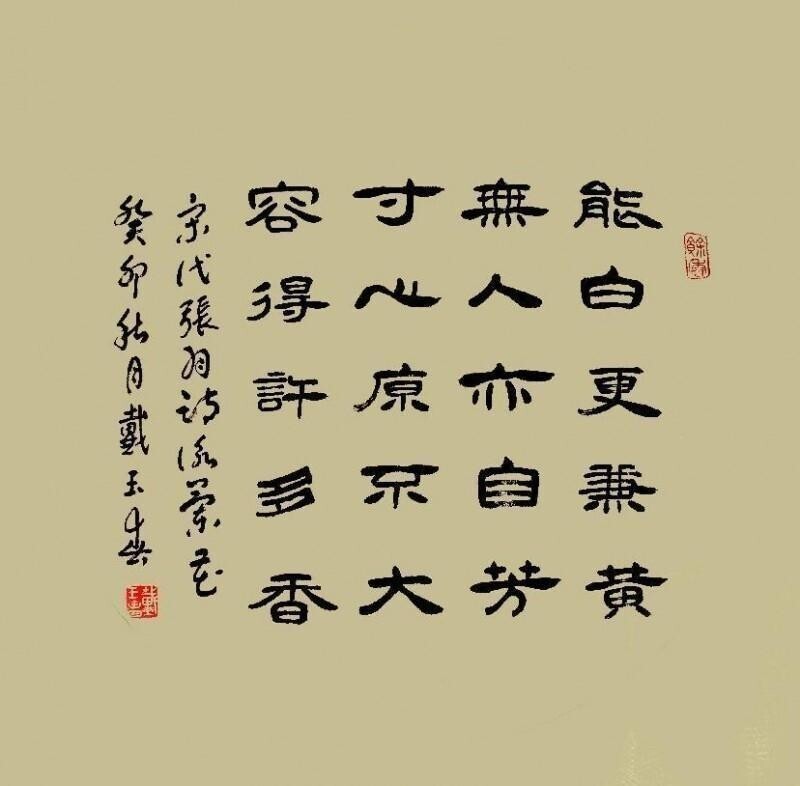 能白更兼黄
無人亦自芳
寸心原不大
容得許多香
宋代張羽詩咏蘭花
癸卯秋月戴玉春